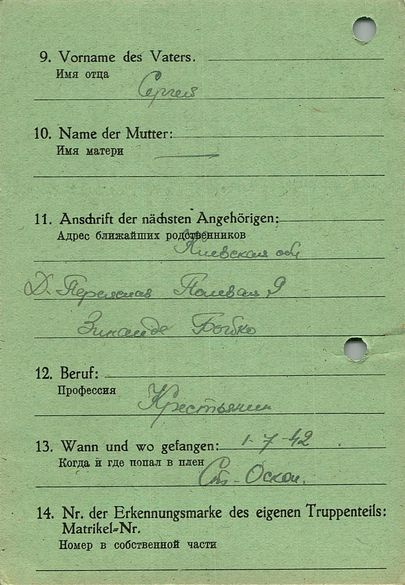 9. Vorname des Vaters.
Имя отца
Сергей
10. Name der Mutter:
Имя матери
11. Anschrift der nächsten Angehörigen:
Адрес ближайших родственников
Киевская обл
Д. Переяслав Полевая 9
Зинаиде Бобко
12. Beruf:
Профессия
Крестьянин
13. Wann und wo gefangen: 1-7-42
Когда и где попал в плен
Ст-Оскол.
14. Nr. der Erkennungsmarke des eigenen Truppenteils:
Matrikel-Nr.
Номер в собственной части